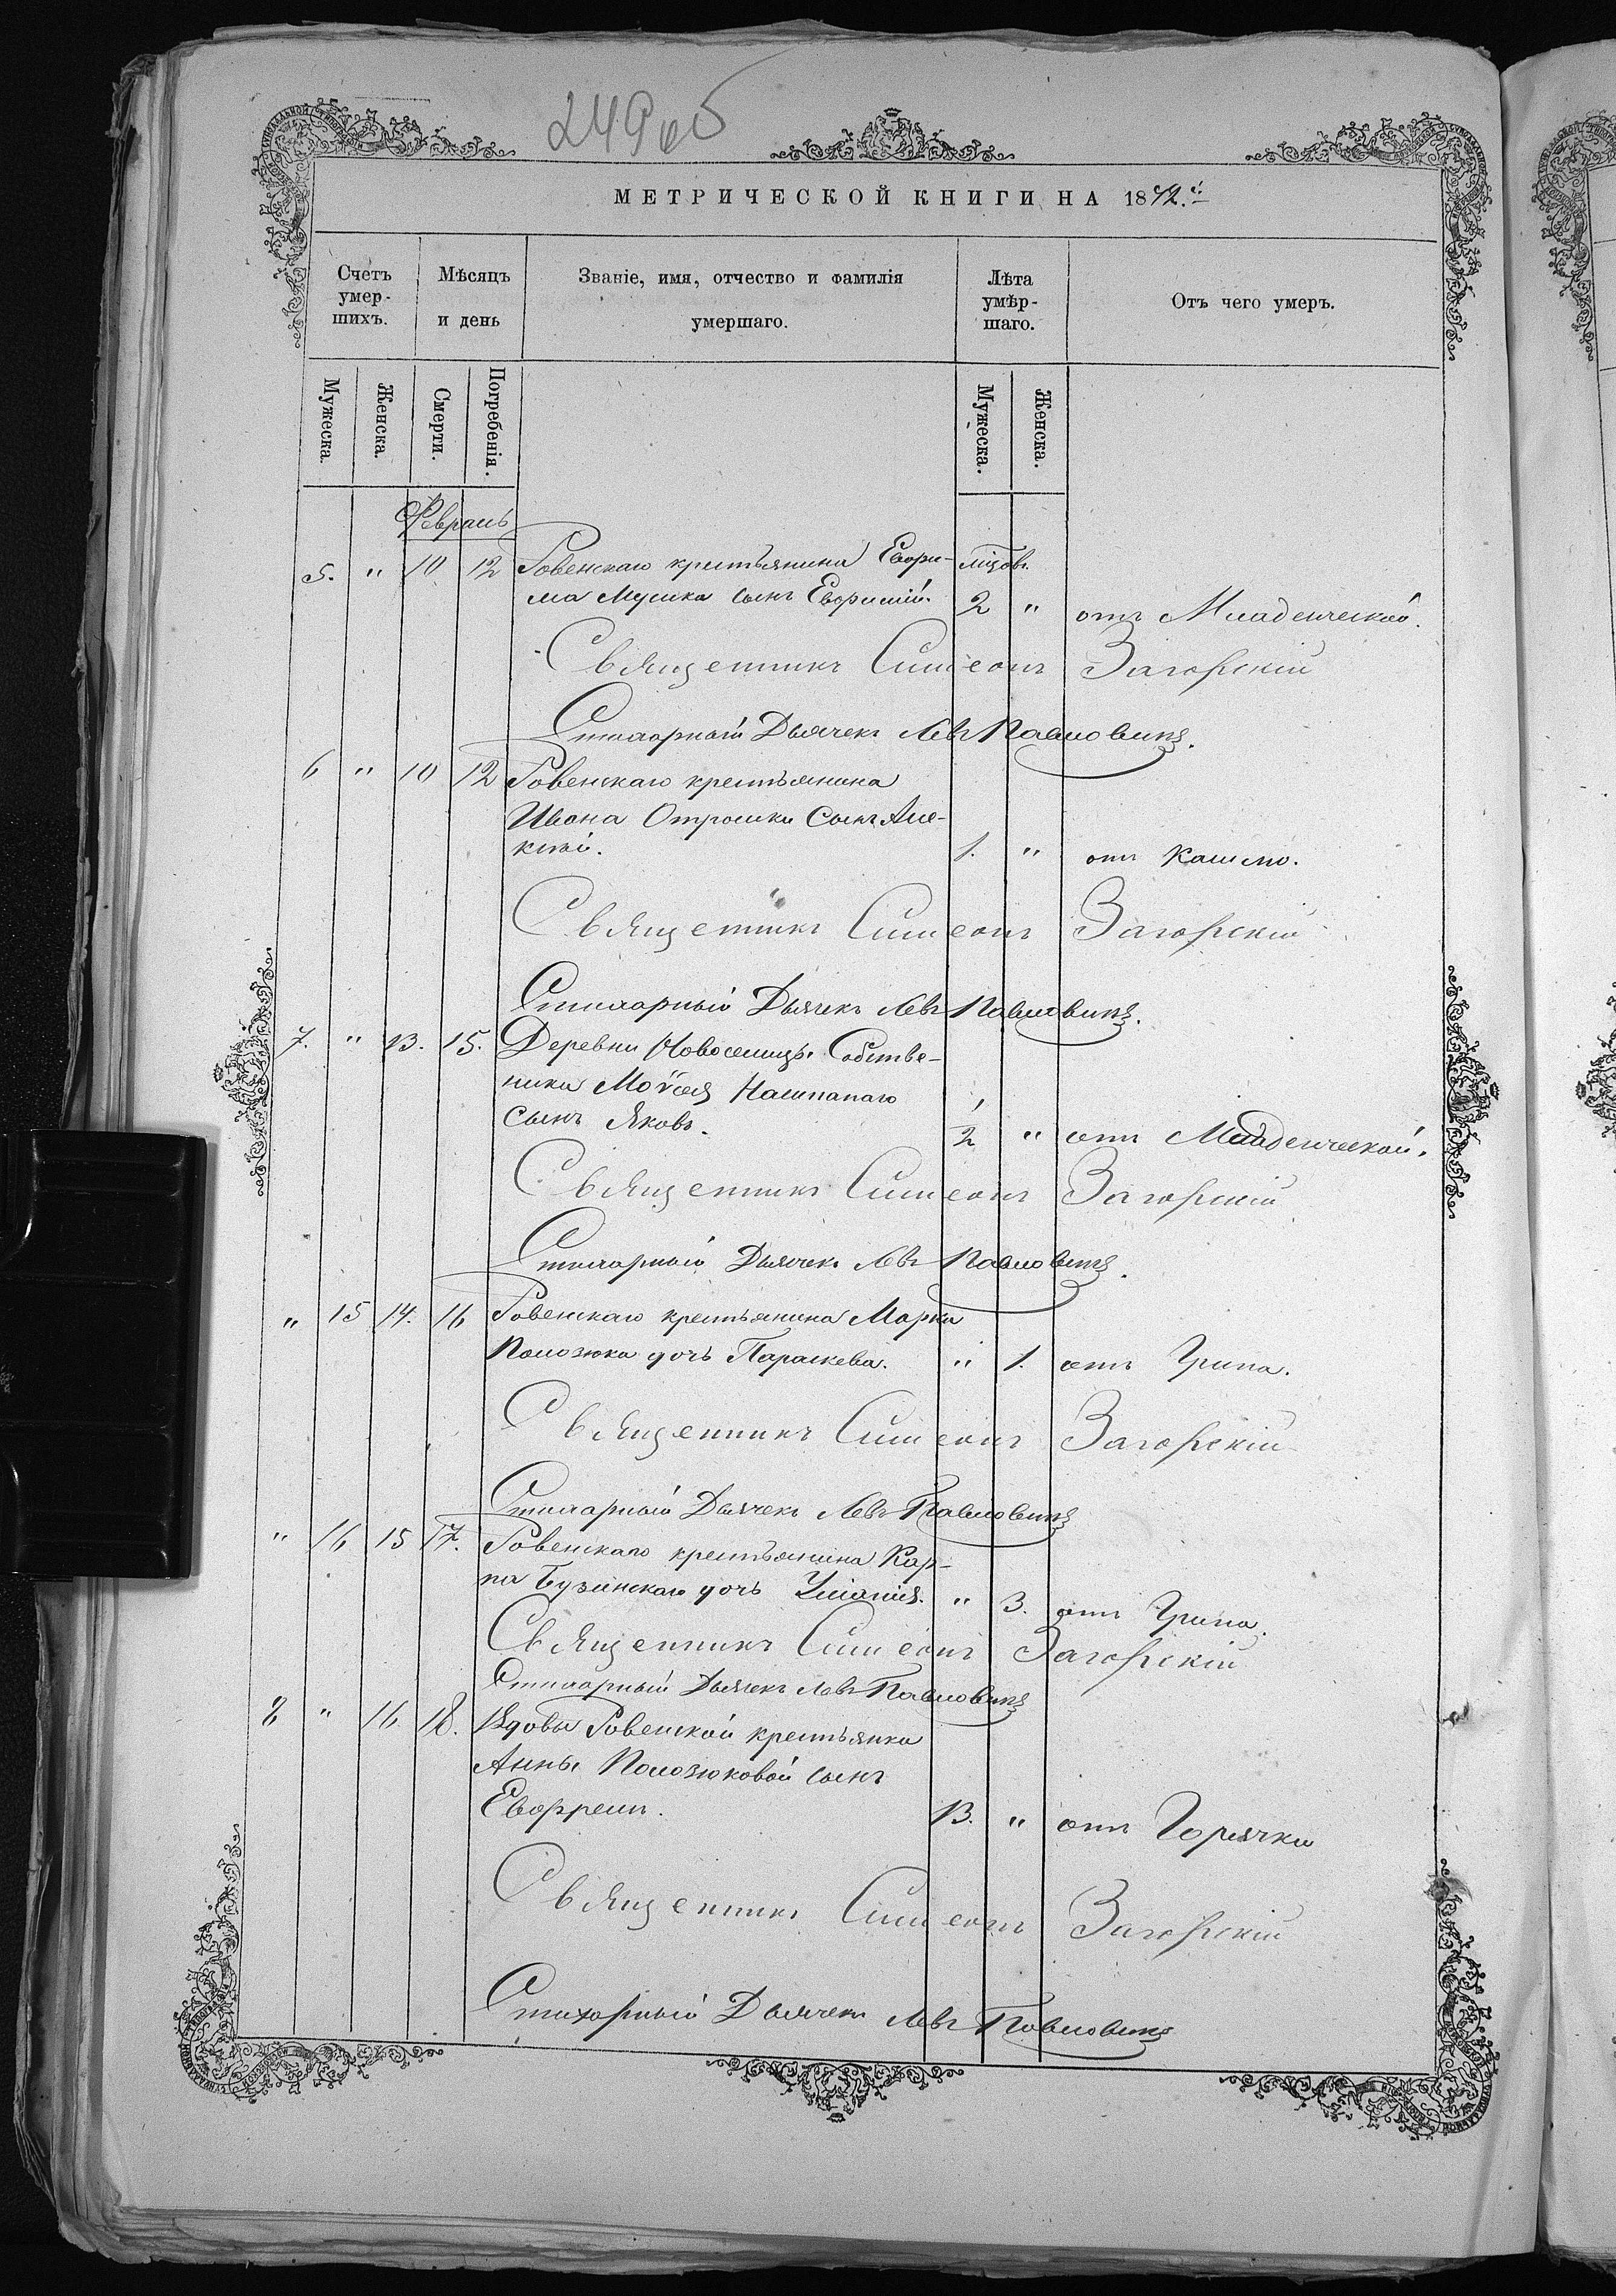 249 об
МЕТРИЧЕСКОЙ КНИГИ НА 1872.й
Счетъ умер- шихъ.
Мѣсяцъ и день
Званіе, имя, отчество и фамилія умершаго.
Лѣта умѣр- шаго.
Отъ чего умеръ.
Мужеска. Женска. Смерти. Погребенія. Мужеска. Женска.
Февраль
5. " 10 12 Ровенскаго крестьянина
сынъ 2 " отъ Младенческой.
Священникъ Симеонъ Загорскій
Стихарный Дьячекъ Левъ Павловичъ.
6 " 10 12 Ровенскаго крестьянина
Ивана Отрошки сынъ Але-
ксѣй. 1. " отъ Кашлю.
Священникъ Симеонъ Загорскій
Стихарный Дьячекъ Левъ Павловичъ.
7. " 13. 15. Деревни Новоселицъ Собстве-
ника
сынъ Яковъ. 1/2 " отъ Младенческой.
Священникъ Симеонъ Загорскій
Стихарный Дьячекъ Левъ Павловичъ.
" 15 14. 16 Ровенскаго крестьянина Марка
Полозюка дочь Параскева. " 1. отъ Грипа.
Священникъ Симеонъ Загорскій
Стихарный Дьячекъ Левъ Павловичъ
" 16 15 17. Ровенскаго крестьянина Кар-
па Бузинскаго дочь Уліанія. " 3. отъ Грипа.
Священникъ Симеонъ Загорскій
Стихарный Дьячекъ Левъ Павловичъ
8 " 16 18. Вдовы Ровенской крестьянки
Анны Полозюковой сынъ
13. " отъ Горячки
Священникъ Симеонъ Загорскій
Стихарный Дьячекъ Левъ Павловичъ